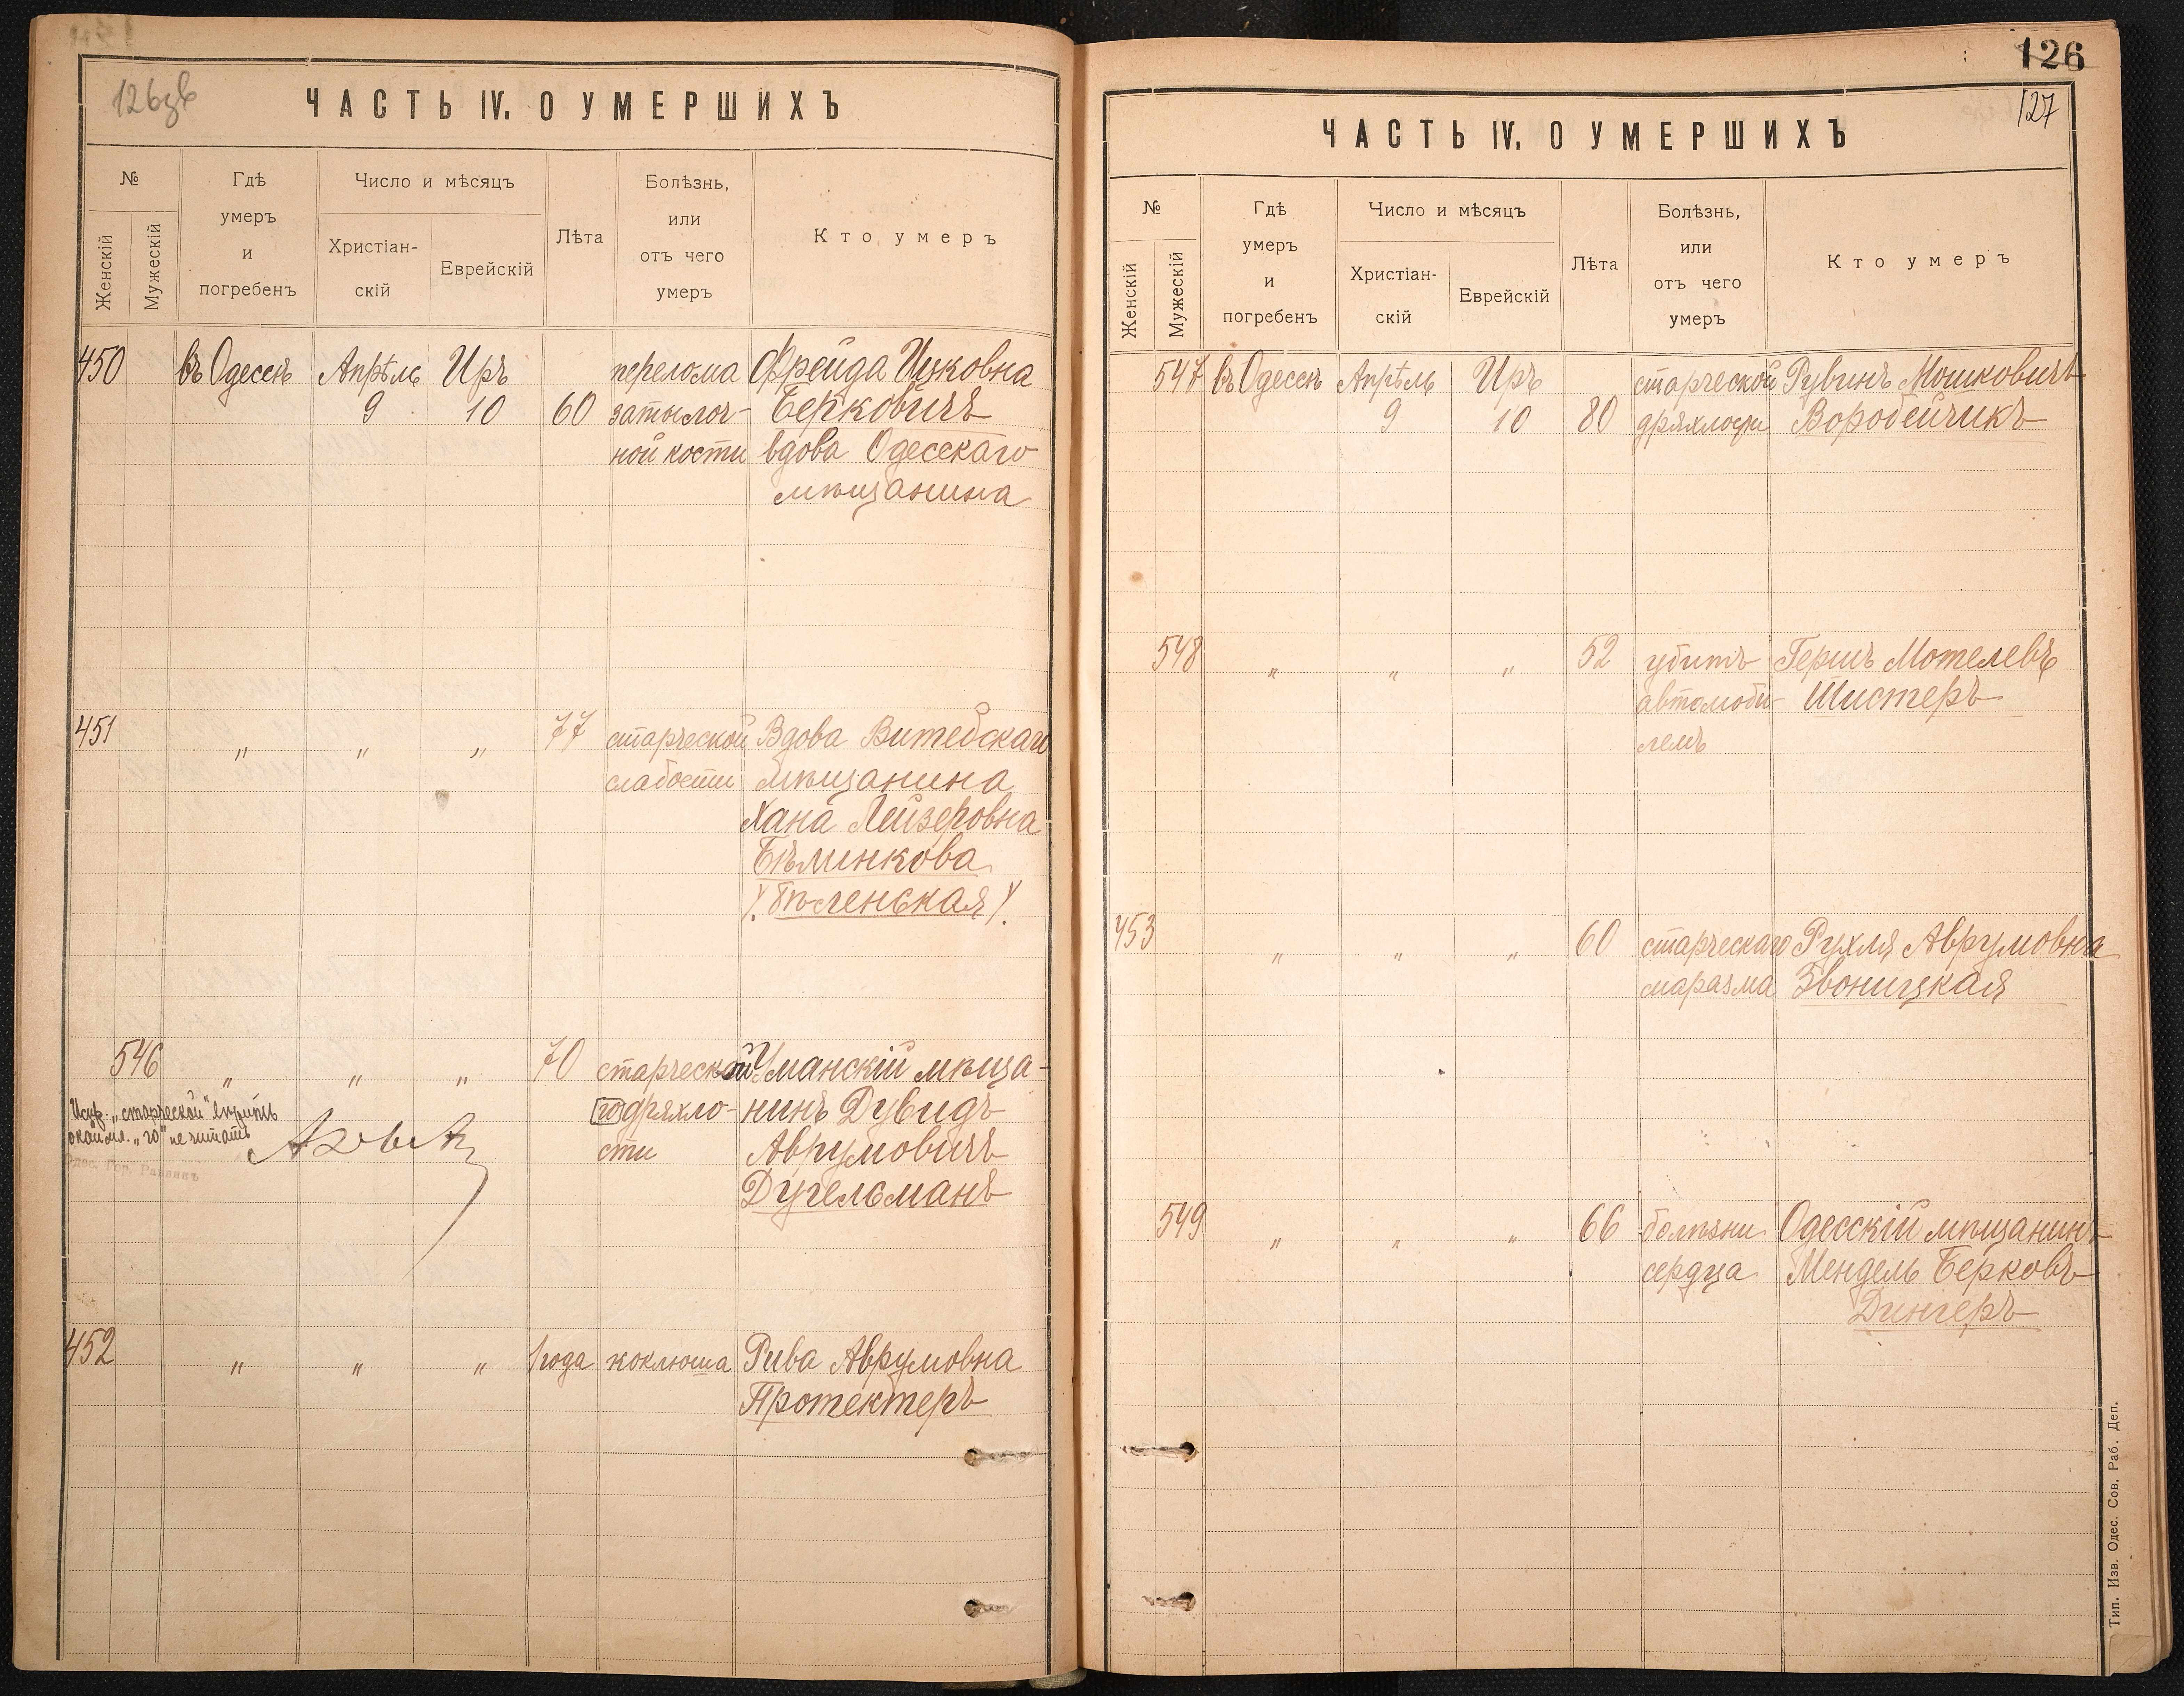 126зв
ЧАСТЬ IV. О УМЕРШИХЪ
№
Женскій
Мужескій
Гдѣ
умеръ
и
погребенъ
Число и мѣсяцъ
Христіан-
скій
Еврейскій
Лѣта
Болѣзнь,
или
отъ чего
умеръ
Кто умеръ
450 въ Одессѣ Апрѣль Иръ перелома Фрейда Ицковна
9 10 60 затылоч- Берковичъ
ной кости вдова Одесскаго
мѣщанина
451 „ „ „ 77 старческой Вдова Витебскаго
слабости мѣщанина
Хана Лейзеровна
Бѣлинкова
/. Бѣленькая /.
546 „ „ „ 70 старческой Уманскій мѣща-
го дряхло- нинъ Дувидъ
сти Аврумовичъ
Дугельманъ
Испр. „старческой" вѣрить
окайм. „го" не читать
Одес. Гор. Раввинъ
452 „ „ „ 1 года коклюша Рива Аврумовна
Протектеръ
126
127
ЧАСТЬ IV. О УМЕРШИХЪ
№
Женскій
Мужескій
Гдѣ
умеръ
и
погребенъ
Число и мѣсяцъ
Христіан-
скій
Еврейскій
Лѣта
Болѣзнь,
или
отъ чего
умеръ
Кто умеръ
547 въ Одессѣ Апрѣль Иръ старческой Рувинъ Мошковичъ
9 10 80 дряхлости Воробейчикъ
548 „ „ „ 52 убитъ Гершъ Мотелевъ
автомоби- Шистеръ
лемъ
453 „ „ „ 60 старческаго Рухля Аврумовна
маразма Звоницкая
549 „ „ „ 66 болѣзни Одесскій мѣщанинъ
сердца Мендель Берковъ
Дингеръ
Тип. Изв. Одес. Сов. Раб. Деп.